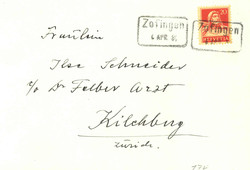 Fräulein
Zofingen
4 APR. 
Zofingen
20
HELVETIA
Ilse Schneider
c/o Dr Felber Arzt
Kilchberg
Zürich.